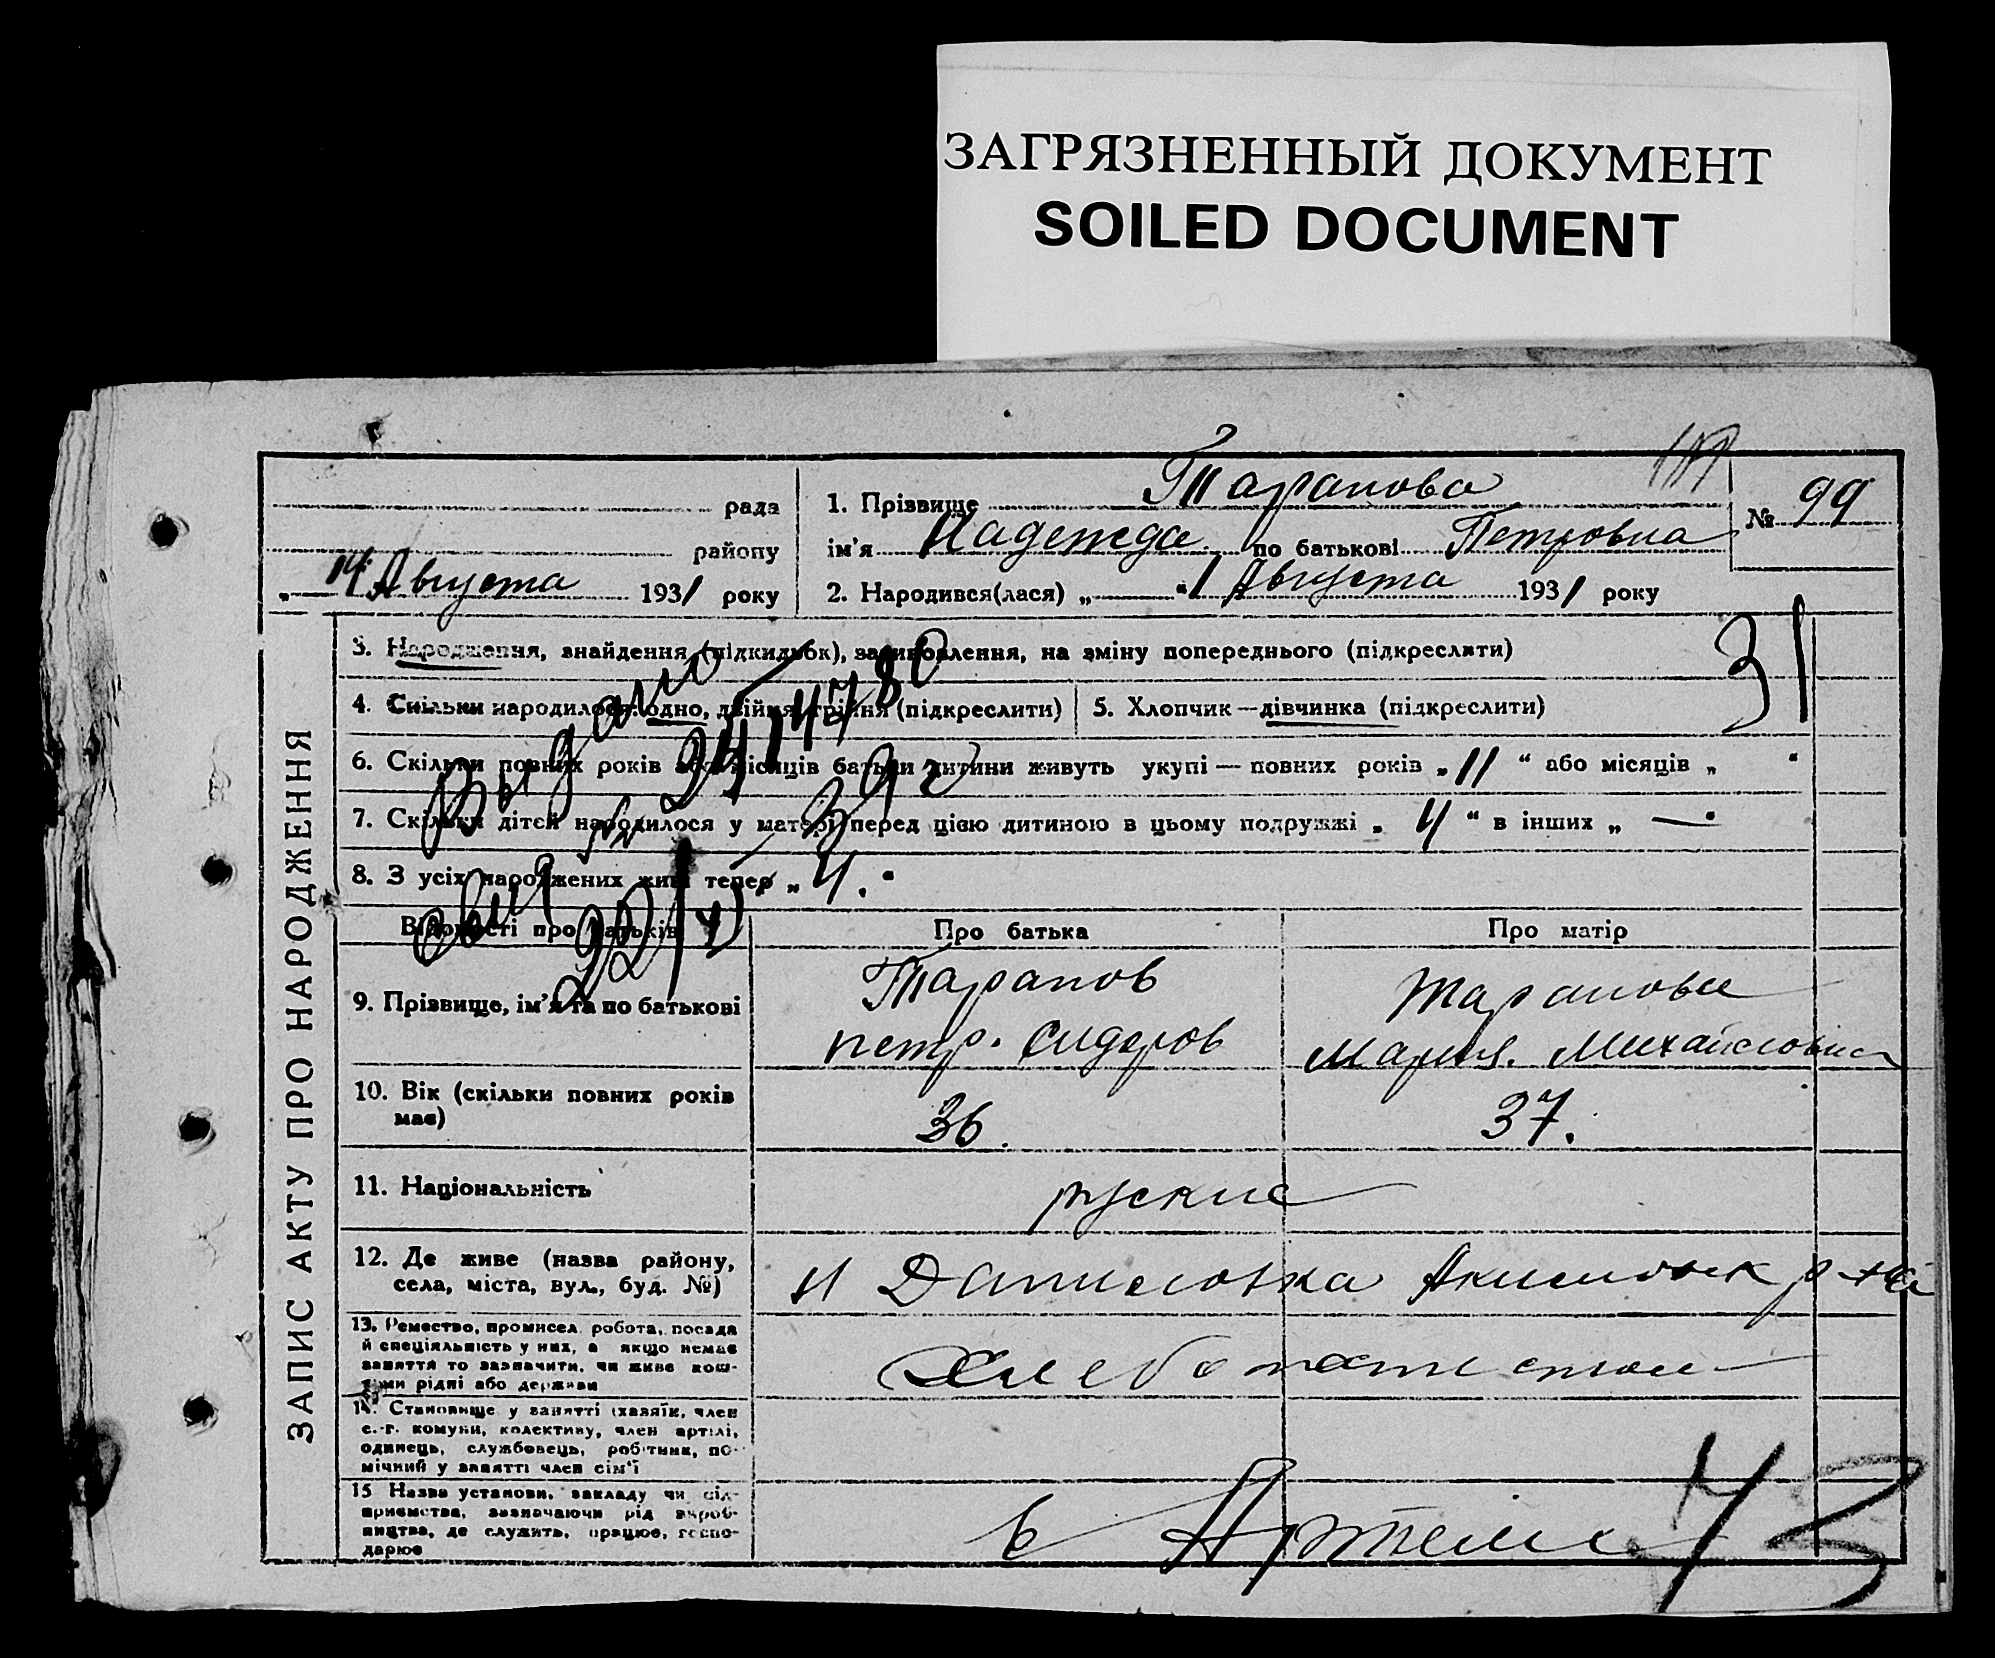 ЗАГРЯЗНЕННЫЙ ДОКУМЕНТ
SOILED DOCUMENT
ЗАПИС АКТУ ПРО НАРОДЖЕННЯ
рада
району
„14" Августа 1931 року
1. Прізвище Тарапова
ім'я Надежда по батькові Петровна
№ 99
2. Народився(лася) „1" Августа 1931 року
3. Народження, знайдення (підкидьок), зазиновлення, на зміну попереднього (підкреслити)
31
4. Скільки народилося: одно, двійня, трійня (підкреслити)
5. Хлопчик — дівчинка (підкреслити)
6. Скільки повних років або місяців батьки дитини живуть укупі — повних років „11" або місяців „ "
7. Скільки дітей народилося у матері перед цією дитиною в цьому подружжі „4" в інших „—"
8. З усіх народжених живі тепер „4."
Выдано
Відомості про батьків
Про батька
Про матір
9. Прізвище, ім'я та по батькові
Тарапов
петр. Сидоров
Тарапова
Мария. Михайловна
10. Вік (скільки повних років має)
36.
37.
11. Національність
руские
12. Де живе (назва району,
села, міста, вул., буд. №)
н Даниловка Акимовск р-на
13. Ремество, промисел, робота, посада
й спеціяльність у них, а якщо немає
заняття то зазначити, чи живе кош-
тами рідні або держави
Хлебопашество
14. Становище у занятті (хазяїн, член
с.-г. комуни, колективу, член артілі,
одинець, службовець, робітник, по-
мічний у занятті член сім'ї
15 Назва установи, закладу чи під-
приємства, зазначаючи рід вироб-
ництва, де служить, працює, госпо-
дарює
в Артели
43